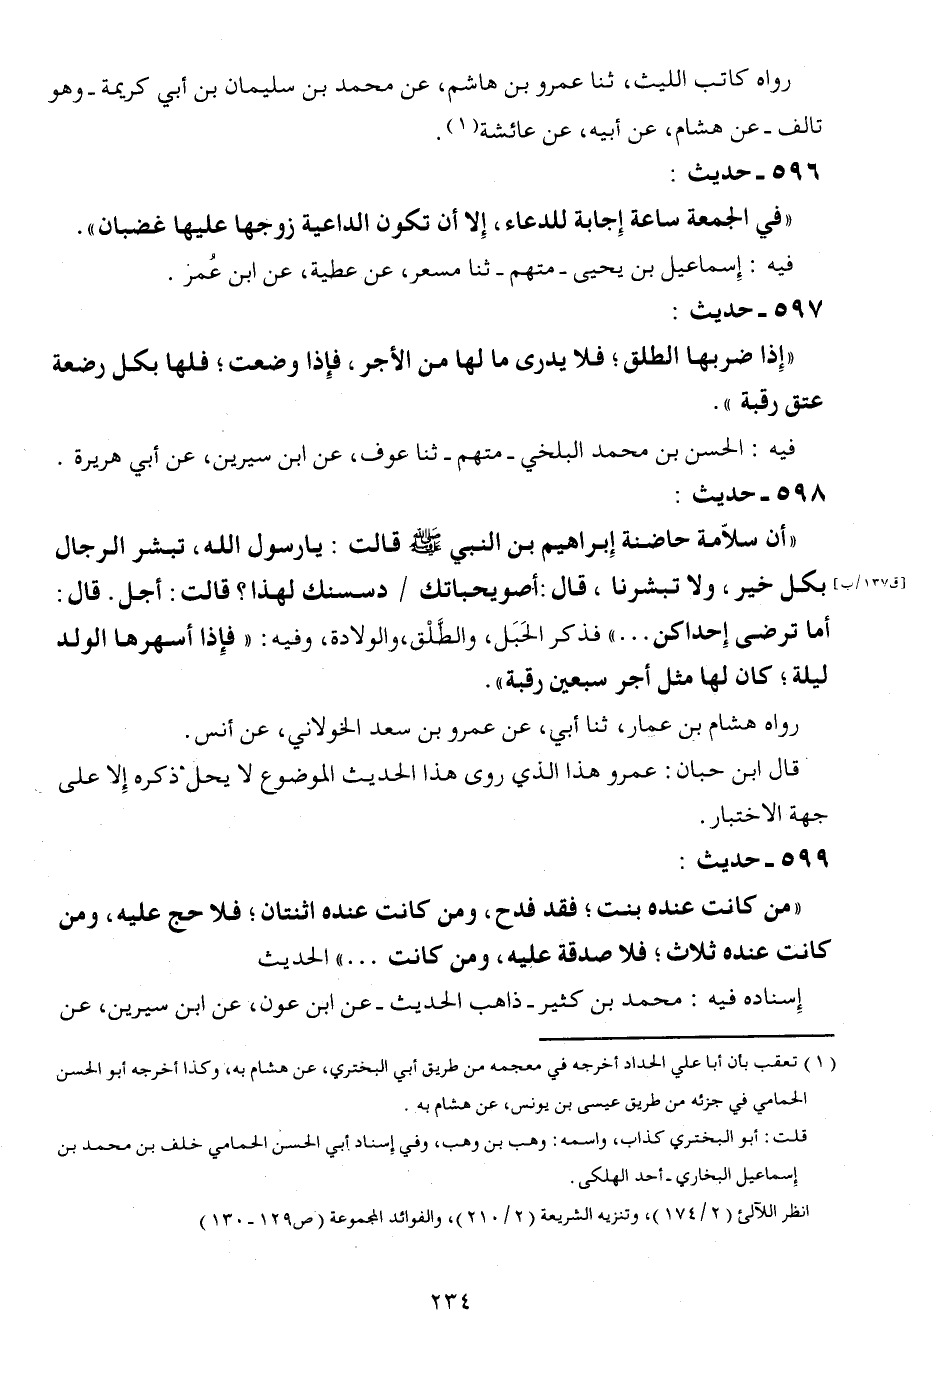 رواه كاتب الليث، ثنا عمرو بن هاشم، عن محمد بن سليمان بن أبي كريمة ـ وهو
تالف ـ عن هشام، عن أبيه، عن عائشة(١).
٥٩٦ ـ حديث :
«في الجمعة ساعة إجابة للدعاء، إلا أن تكون الداعية زوجها عليها غضبان».
فيه : إسماعيل بن يحيى ـ متهم ـ ثنا مسعر، عن عطية، عن ابن عُمرَ .
٥٩٧ ـ حديث :
«إذا ضربها الطلق؛ فلا يدرى ما لها من الأجر، فإذا وضعت؛ فلها بكل رضعة
عتق رقبة ».
فيه : الحسن بن محمد البلخي ـ متهم ـ ثنا عوف، عن ابن سيرين، عن أبي هريرة .
٥٩٨ ـ حديث :
«أن سلاّمة حاضنة إبراهيم بن النبي ﷺ قالت : يارسول الله، تبشر الرجال
بكل خير، ولا تبشرنا ، قال :أصويحباتك / دسسنك لهذا؟ قالت: أجل. قال: [ق١٣٧/ب]
أما ترضى إحداكن...» فذكر الحَبَل، والطَّلْق،والولادة، وفيه: « فإذا أسهرها الولد
ليلة؛ كان لها مثل أجر سبعين رقبة».
رواه هشام بن عمار، ثنا أبي، عن عمرو بن سعد الخولاني، عن أنس.
قال ابن حبان: عمرو هذا الذي روى هذا الحديث الموضوع لا يحل ذكره إلا على
جهة الاختبار.
٥٩٩ ـ حديث :
«من كانت عنده بنت؛ فقد فدح، ومن كانت عنده اثنتان؛ فلا حج عليه، ومن
كانت عنده ثلاث؛ فلا صدقة عليه، ومن كانت ...» الحديث
إسناده فيه : محمد بن كثير ـ ذاهب الحديث ـ عن ابن عون، عن ابن سيرين، عن
(١) تعقب بأن أبا علي الحداد أخرجه في معجمه من طريق أبي البختري، عن هشام به، وكذا أخرجه أبو الحسن
الحمامي في جزئه من طريق عيسى بن يونس، عن هشام به .
قلت: أبو البختري كذاب، واسمه: وهب بن وهب، وفي إسناد أبي الحسن الحمامي خلف بن محمد بن
إسماعيل البخاري ـ أحد الهلكى.
انظر اللآلئ (١٧٤/٢)، وتنزيه الشريعة (٢١٠/٢)، والفوائد المجموعة (ص١٢٩ ـ ١٣٠)
٢٣٤